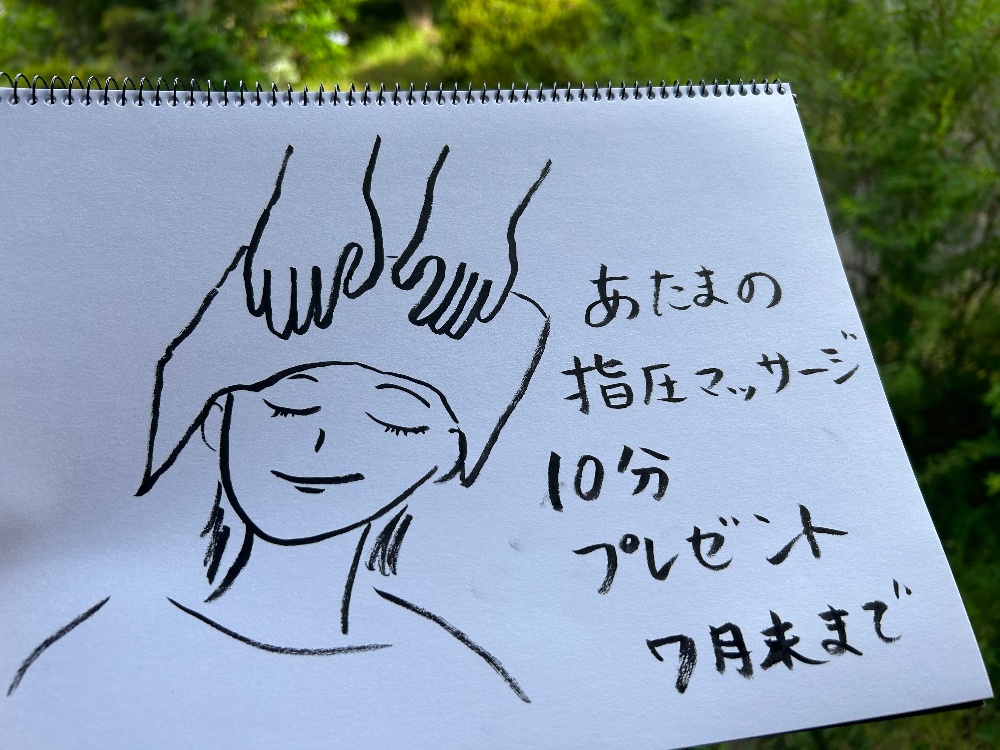 あたまの
指圧マッサージ
10分
プレゼント
7月末まで